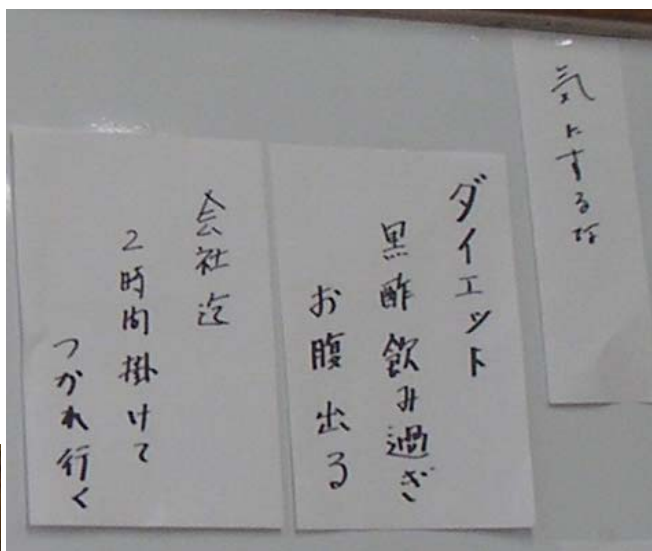 気にするな
ダイエット
黒酢飲み過ぎ
お腹出る
会社迄
2時間掛けて
つかれ行く